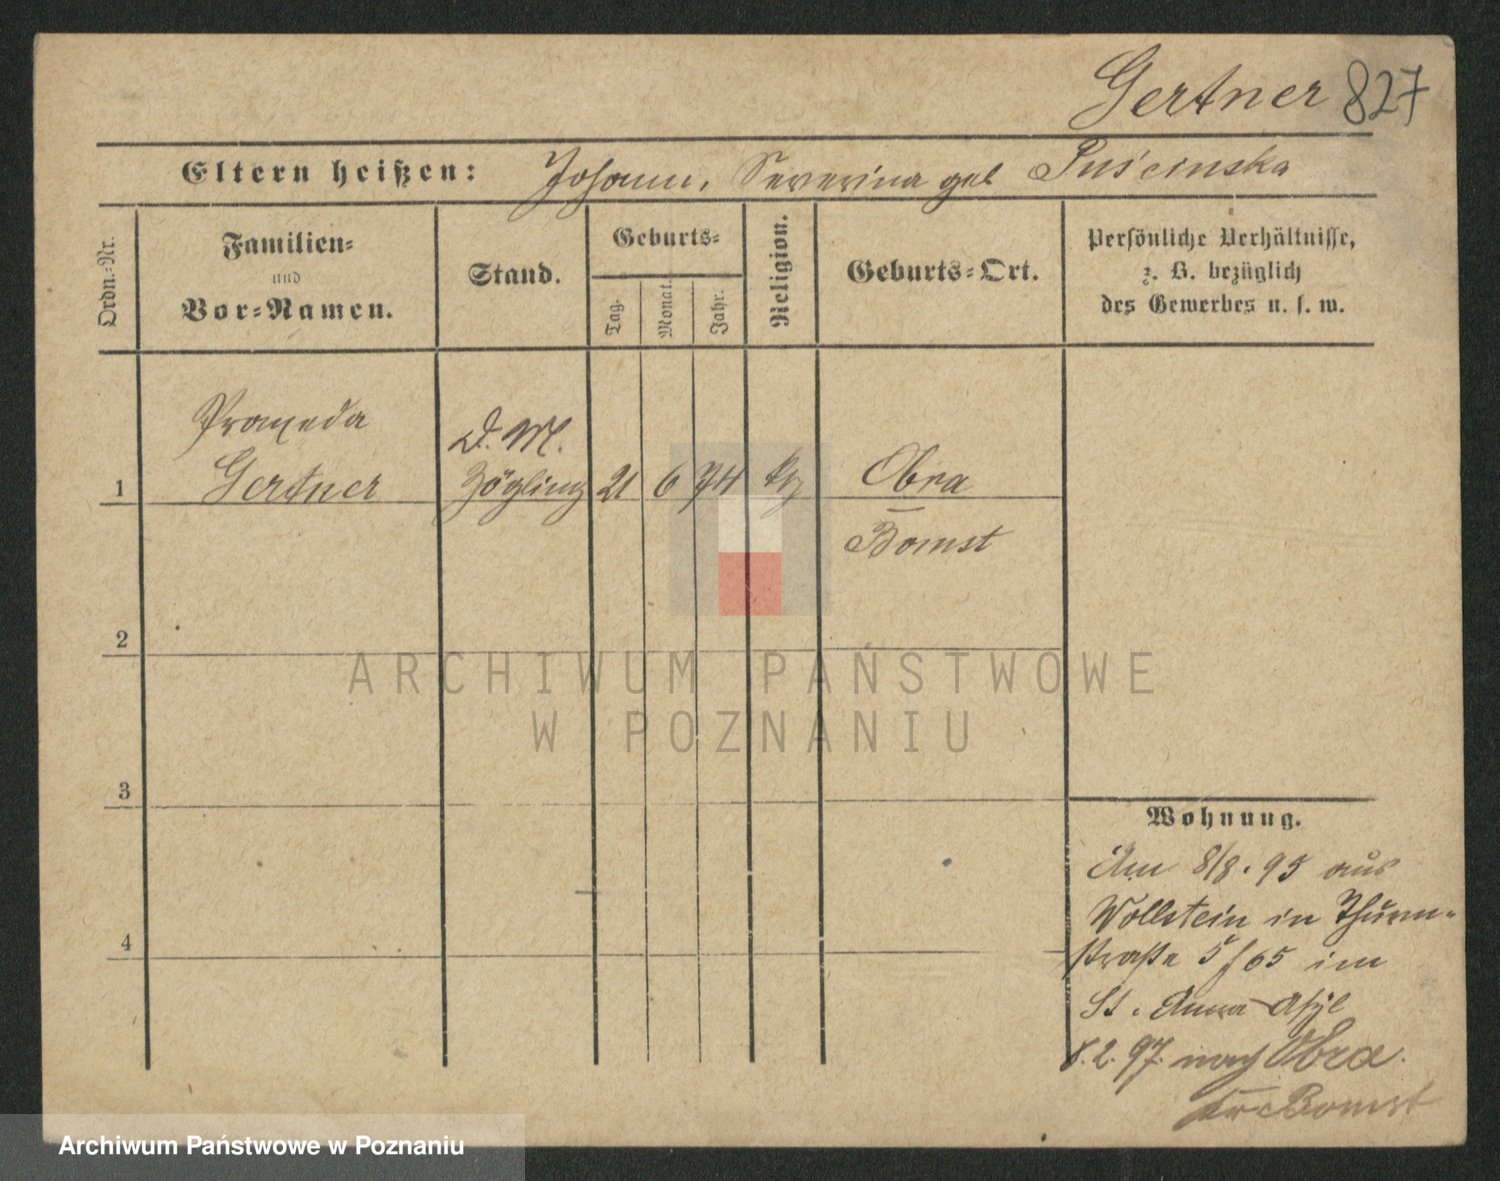 Gertner 827
Eltern heißen: Johann, Severina geb Puścinska
Ordn.=Nr.
Familien=
und
Vor=Namen.
Stand.
Geburts=
Tag.
Monat.
Jahr.
Religion.
Geburts=Ort.
Persönliche Verhältnisse,
z. B. bezüglich
des Gewerbes u. s. w.
Praxeda
D. M.
1 Gertner Zögling 21 6 74 Obra
Bomst
2
3
4
Wohnung.
Am 8/8. 95 aus
Wollstein in Thurm-
straße 5 f 65 im
St. Anna Asyl
8.2.97. nach Obra.
kr Bomst
ARCHIWUM PAŃSTWOWE
W POZNANIU
Archiwum Państwowe w Poznaniu